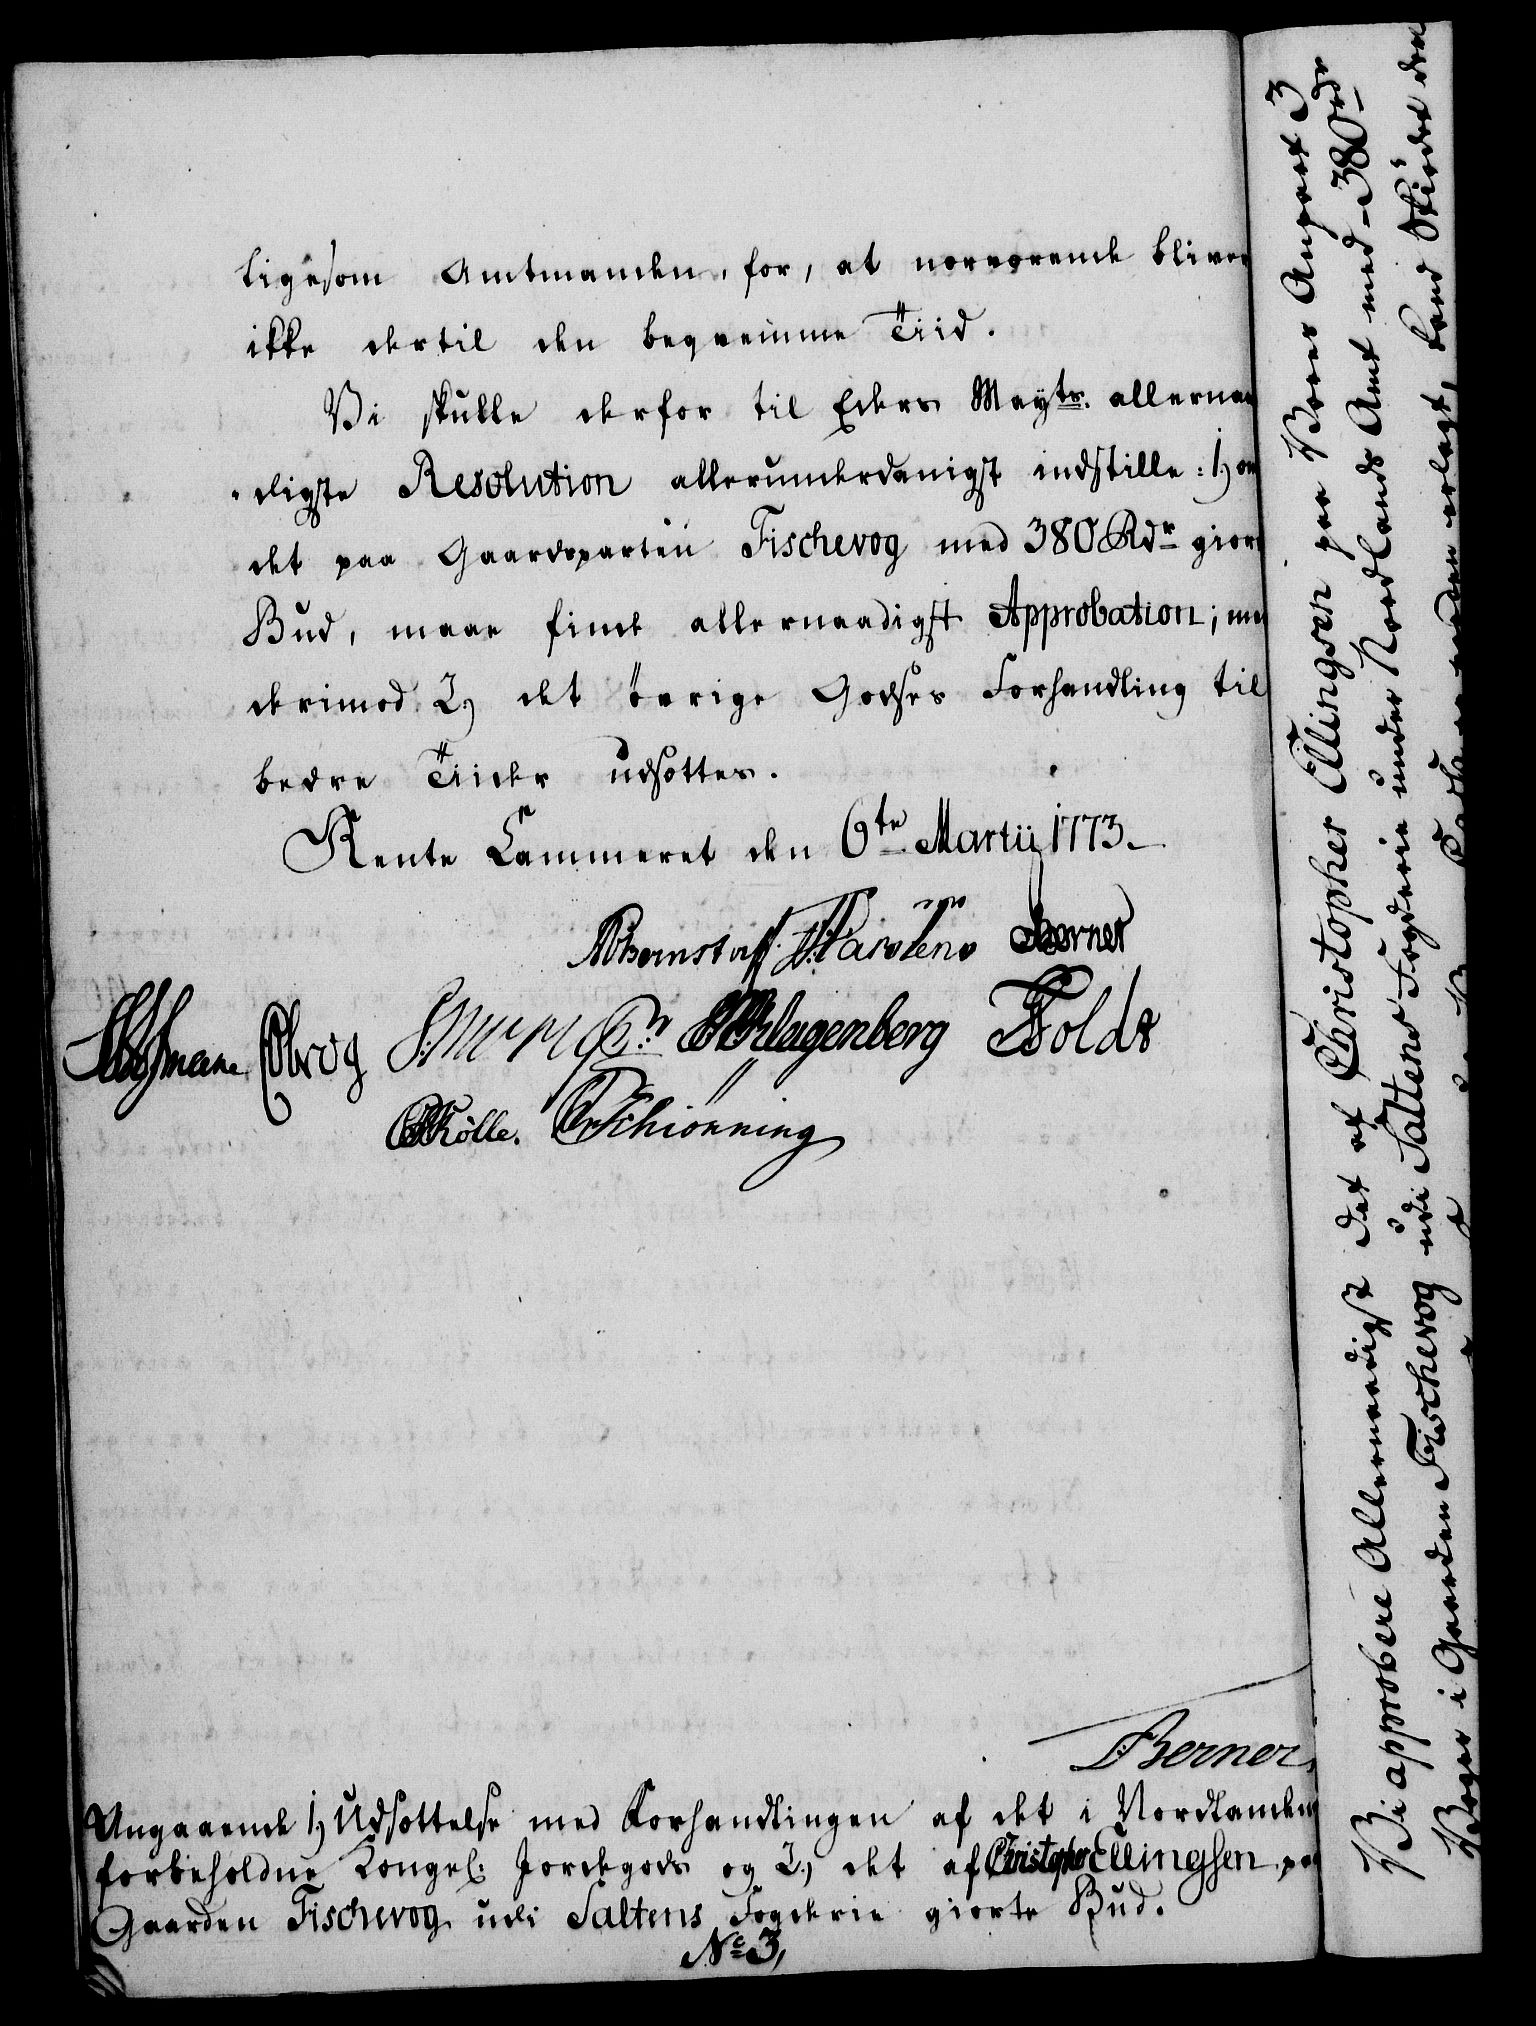 ligesom Amtmanden, for, at nærværende bliver
ikke dertil den beqvemme Tiid.
Vi skulle derfor til Eders Mayts. allernaa
digste Resolution allerunderdanigst indstille: 1) om
det paa Gaardeparten Fischevog med 380 Rdr giorte
Bud, maae finde allernaadigst Approbation; men
derimod 2) det øvrige Godses Forhandling til
bedre Tiider udsættes.
Rente Cammeret den 6te Martii 1773.
ABernstorff. JKarstens Berner
Hoffmann Obrog Schlagenberg Foldt
Kølle. Schiønning
Berner,
Angaaende 1) Udsættelse med Forhandlingen af det i Nordlanden
forbeholdne Kongel: Jordegods og 2) det af Christopher Ellingsen paa
Gaarden Fischevog udi Saltens Fogderie giorte Bud.
No 3,
Vi approbere Allernaadigst det af Christopher Ellingsen paa Vores Anpart 3
Voger i Gaarden Fischevog udi Saltens Fogderie under Nordlands Amt med 380 rdr